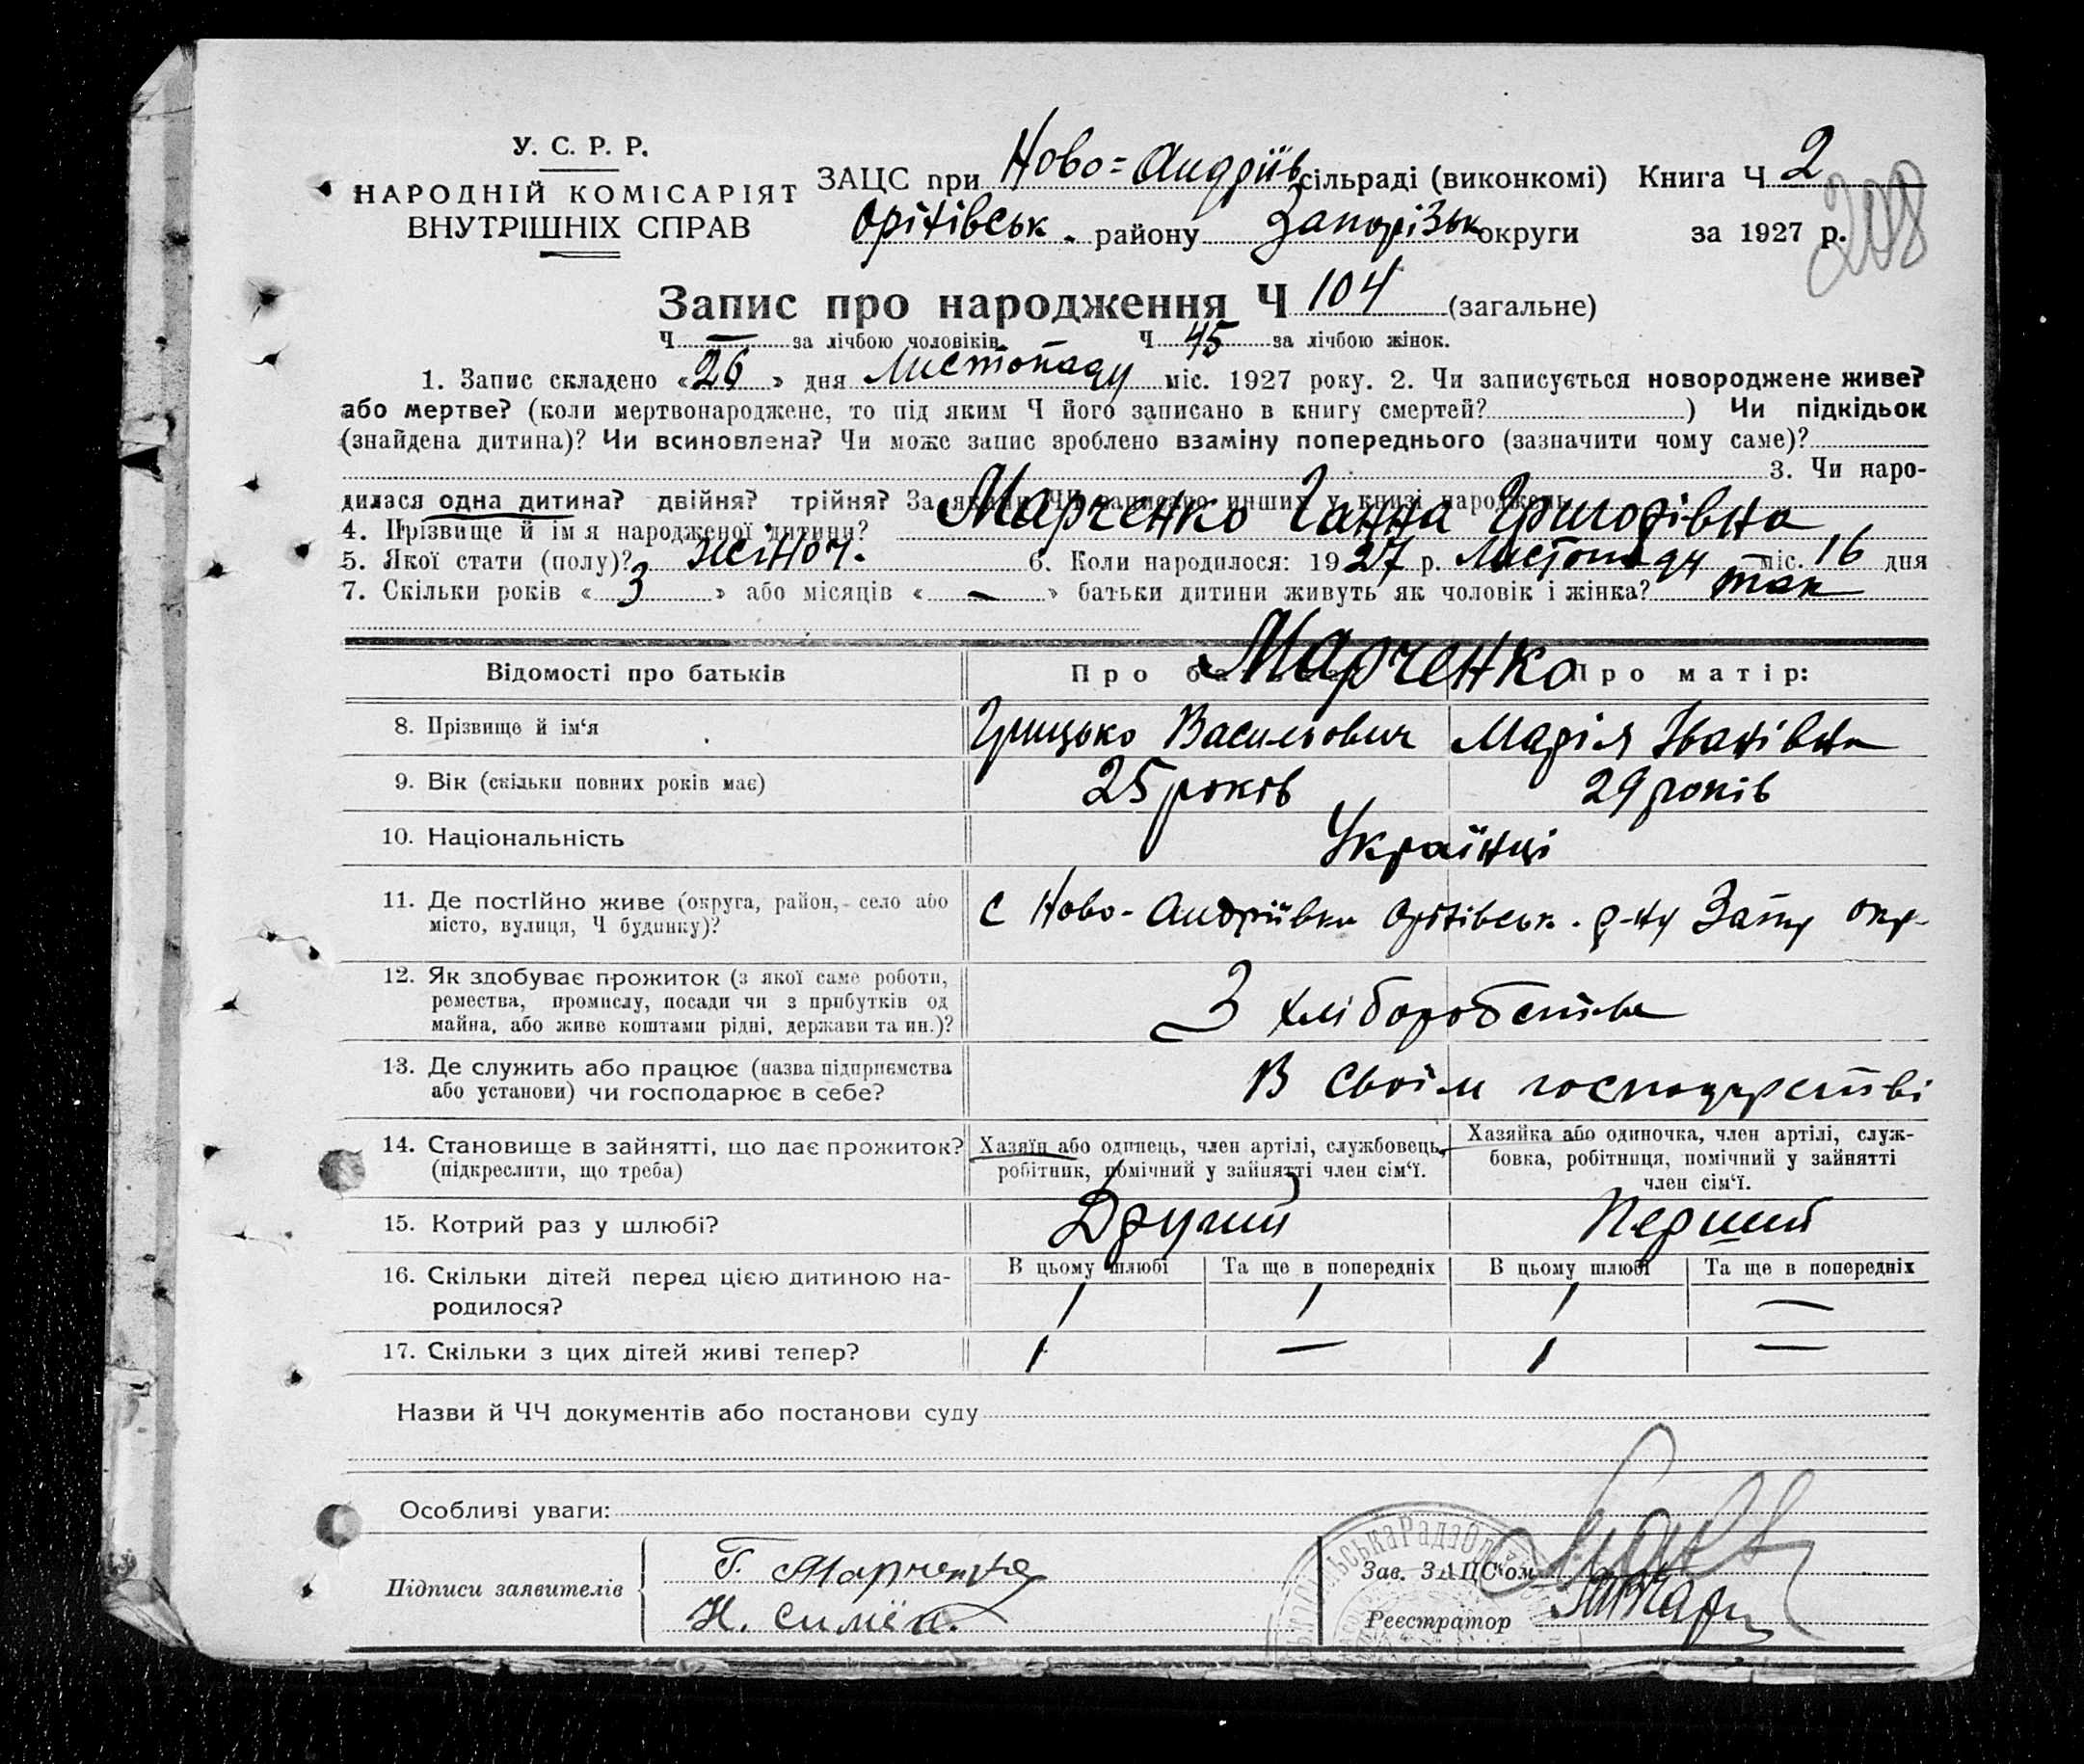 У. С. Р. Р.
НАРОДНІЙ КОМІСАРІЯТ
ВНУТРІШНІХ СПРАВ
ЗАЦС при Ново=Андріїв сільраді (виконкомі) Книга Ч 2
Оріхівськ. району Запорізьк округи за 1927 р.
208
Запис про народження Ч 104 (загальне)
Ч — за лічбою чоловіків Ч 45 за лічбою жінок.
1. Запис складено «26» дня Листопаду міс. 1927 року. 2. Чи записується новороджене живе?
або мертве? (коли мертвонароджене, то під яким Ч його записано в книгу смертей?) Чи підкідьок
(знайдена дитина)? Чи всиновлена? Чи може запис зроблено взаміну попереднього (зазначити чому саме)?
3. Чи наро-
дилася одна дитина? двійня? трійня? За якими ЧЧ записано инших у книзі народжень
4. Прізвище й ім'я народженої дитини? Марченко Ганна Григорівна
5. Якої стати (полу)? жіноч. 6. Коли народилося: 1927 р. Листопаду міс. 16 дня
7. Скільки років «3» або місяців «—» батьки дитини живуть як чоловік і жінка? так
Відомості про батьків Про Марченко Про матір:
8. Прізвище й ім'я Грицько Васильович Марія Іванівна
9. Вік (скільки повних років має) 25 років 29 років
10. Національність Українці
11. Де постійно живе (округа, район, село або
місто, вулиця, Ч будинку)? с Ново-Андріївки Оріхівськ. р-ну Запор окр-
12. Як здобуває прожиток (з якої саме роботи,
ремества, промислу, посади чи з прибутків од
майна, або живе коштами рідні, держави та ин.)? З хліборобства
13. Де служить або працює (назва підприємства
або установи) чи господарює в себе? В своїм господарстві
14. Становище в зайнятті, що дає прожиток?
(підкреслити, що треба)
Хазяїн або одинець, член артілі, службовець,
робітник, помічний у зайнятті член сім'ї.
Хазяйка або одиночка, член артілі, служ-
бовка, робітниця, помічний у зайнятті
член сім'ї.
15. Котрий раз у шлюбі? Другий Перший
В цьому шлюбі Та ще в попередніх В цьому шлюбі Та ще в попередніх
16. Скільки дітей перед цією дитиною на-
родилося? 1 1 1 —
17. Скільки з цих дітей живі тепер? 1 — 1 —
Назви й ЧЧ документів або постанови суду
Особливі уваги:
Підписи заявителів
Г. Марченко
Зав. ЗАЦС'ом
Реєстратор